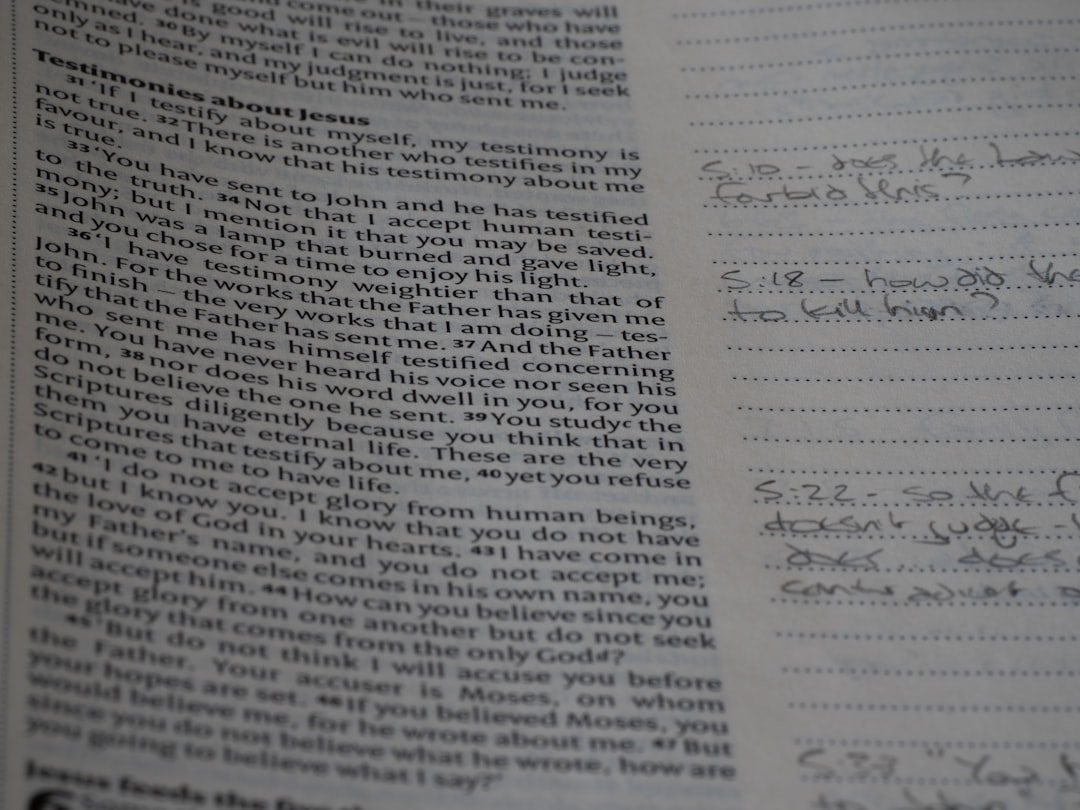 in their graves will
and come out – those who have
is good will rise to live, and those
have done what is evil will rise to be con-
demned. 30 By myself I can do nothing; I judge
only as I hear, and my judgment is just, for I seek
not to please myself but him who sent me.
Testimonies about Jesus
31 ‘If I testify about myself, my testimony is
not true. 32 There is another who testifies in my
favour, and I know that his testimony about me
is true.
33 ‘You have sent to John and he has testified
to the truth. 34 Not that I accept human testi-
mony; but I mention it that you may be saved.
35 John was a lamp that burned and gave light,
and you chose for a time to enjoy his light.
36 ‘I have testimony weightier than that of
John. For the works that the Father has given me
to finish – the very works that I am doing – tes-
tify that the Father has sent me. 37 And the Father
who sent me has himself testified concerning
me. You have never heard his voice nor seen his
form, 38 nor does his word dwell in you, for you
do not believe the one he sent. 39 You study c the
Scriptures diligently because you think that in
them you have eternal life. These are the very
Scriptures that testify about me, 40 yet you refuse
to come to me to have life.
41 ‘I do not accept glory from human beings,
42 but I know you. I know that you do not have
the love of God in your hearts. 43 I have come in
my Father's name, and you do not accept me;
but if someone else comes in his own name, you
will accept him. 44 How can you believe since you
accept glory from one another but do not seek
the glory that comes from the only God d?
45 ‘But do not think I will accuse you before
the Father. Your accuser is Moses, on whom
your hopes are set. 46 If you believed Moses, you
would believe me, for he wrote about me. 47 But
since you do not believe what he wrote, how are
you going to believe what I say?’
Jesus feeds the
6
5:10 – does the
forbid this?
5:18 – how did the
to kill him?
5:22 – so the
doesn't judge –
does does
5:37 "You